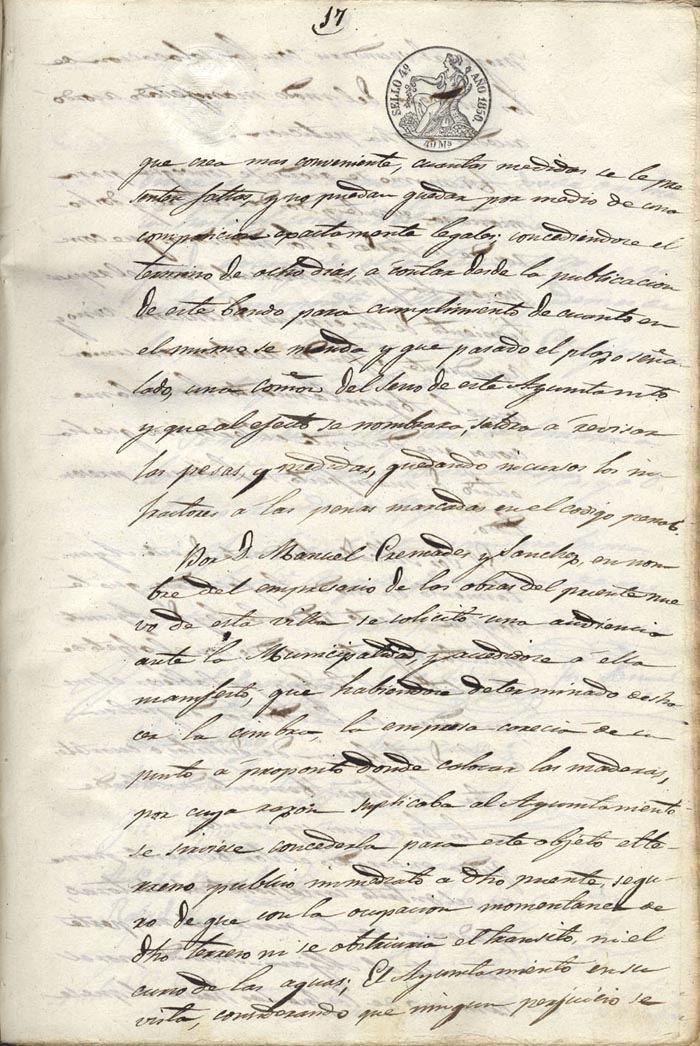 17
SELLO 4º AÑO 1850.
40 Ms
que crea mas conveniente, cuantas medidas se le pre
senten faltas, y no puedan quedar por medio de una
composicion exactamente legales; concediendose el
termino de ocho dias, á contar desde la publicacion
de este bando para cumplimiento de cuanto en
el mismo se manda y que pasado el plazo seña
lado, una Comon del Seno de este Ayuntamto
y que al efecto se nombrara, saldra á revisar
las pesas, y medidas, quedando incursos los in
fractores a las penas marcadas en el codigo penal.
Por D. Manuel Cremades y Sanchez, en nom
bre del empresario de las obras del puente nue
vo de esta villa se solicitó una audiencia
ante la Municipalidad, y accedidose á ella
manifestó, que habiendose determinado desha
cer la cimbra, la empresa carecia de un
punto á proposito donde colocar las maderas,
por cuya razon suplicaba al Ayuntamiento
se sirviese concederla para este objeto el te
rreno publico inmediato a dho puente, segu
ro de que con la ocupacion momentanea de
dho terreno ni se obstruiria el transito, ni el
curso de las aguas; El Ayuntamiento en su
vista, considerando que ningun perjuicio se